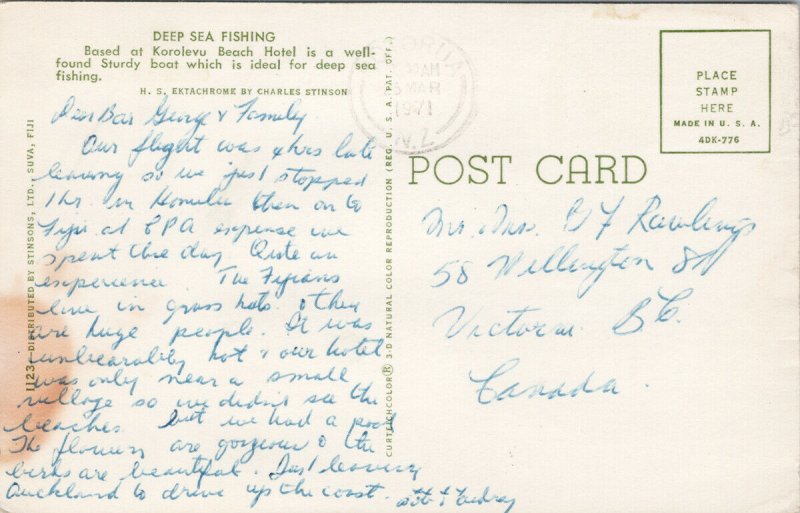 DEEP SEA FISHING
Based at Korolevu Beach Hotel is a well-
found Sturdy boat which is ideal for deep sea
fishing.
H. S. EKTACHROME BY CHARLES STINSON
Dear Bar George & Family
Our flight was 4 hrs late
leaving so we just stopped
1 hr. in Honolu then on to
Fiji at CPA expense we
spent the day. Quite an
experience The Fijians
live in grass huts. & they
are huge people. It was
unbearably hot & our hotel
was only near a small
village so we didn't see the
beaches. but we had a pool
The flowers are gorgeous & the
birds are beautiful. Just leaving
Auckland to drive up the coast.
& Audrey
1123 - DISTRIBUTED BY STINSONS, LTD., SUVA, FIJI
CURTEICHCOLOR® 3-D NATURAL COLOR REPRODUCTION (REG. U. S. A. PAT. OFF.)
MAR
1971
N.Z.
PLACE
STAMP
HERE
MADE IN U. S. A.
4DK-776
POST CARD
Mr. Mrs. Rawlings
58 Wellington St
Victoria B C.
Canada.